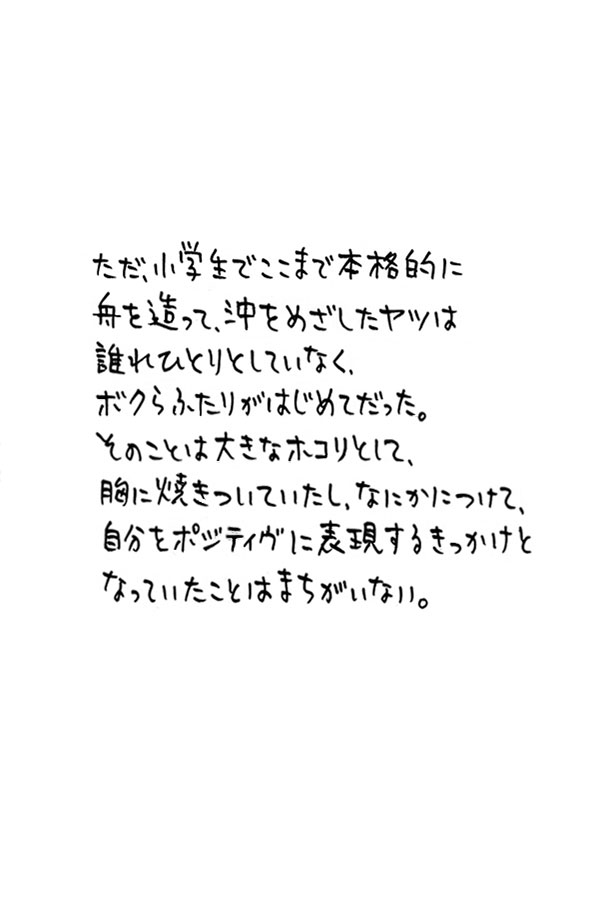 ただ、小学生でここまで本格的に
舟を造って、沖をめざしたヤツは
誰れひとりとしていなく、
ボクらふたりがはじめてだった。
そのことは大きなホコリとして、
胸に焼きついていたし、なにかにつけて、
自分をポジティヴに表現するきっかけと
なっていたことはまちがいない。